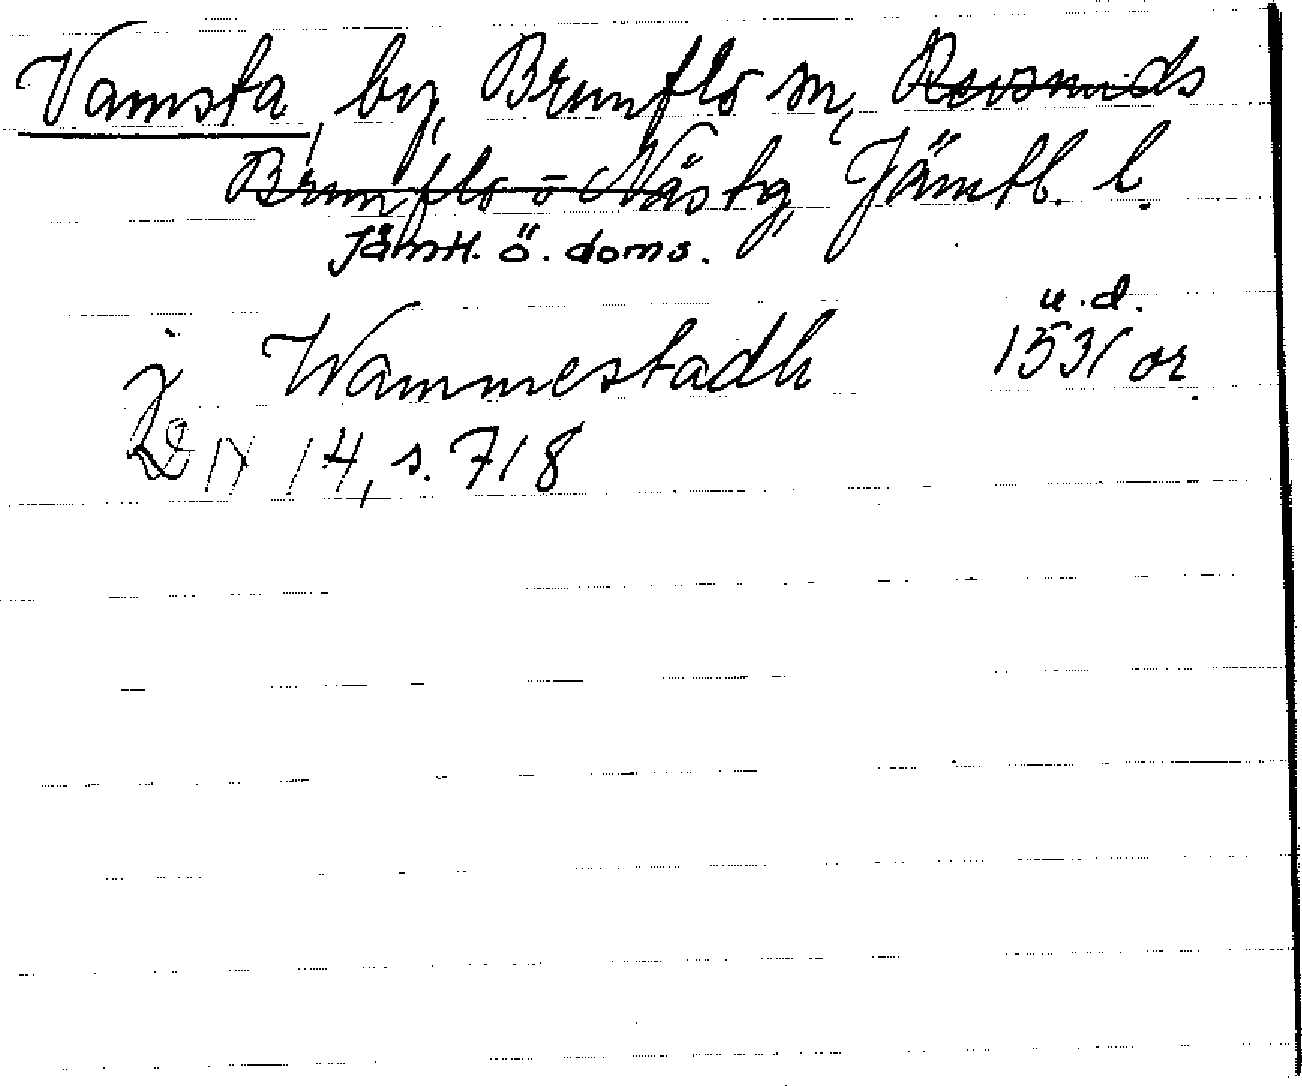 Vamsta, by, Brunflo sn, Revsunds
Brunflo o Näs tg, Jämtl. l.
Jämtl. ö. doms.
u.d.
j Wammestadh 1531 or.
DN 14, s. 718